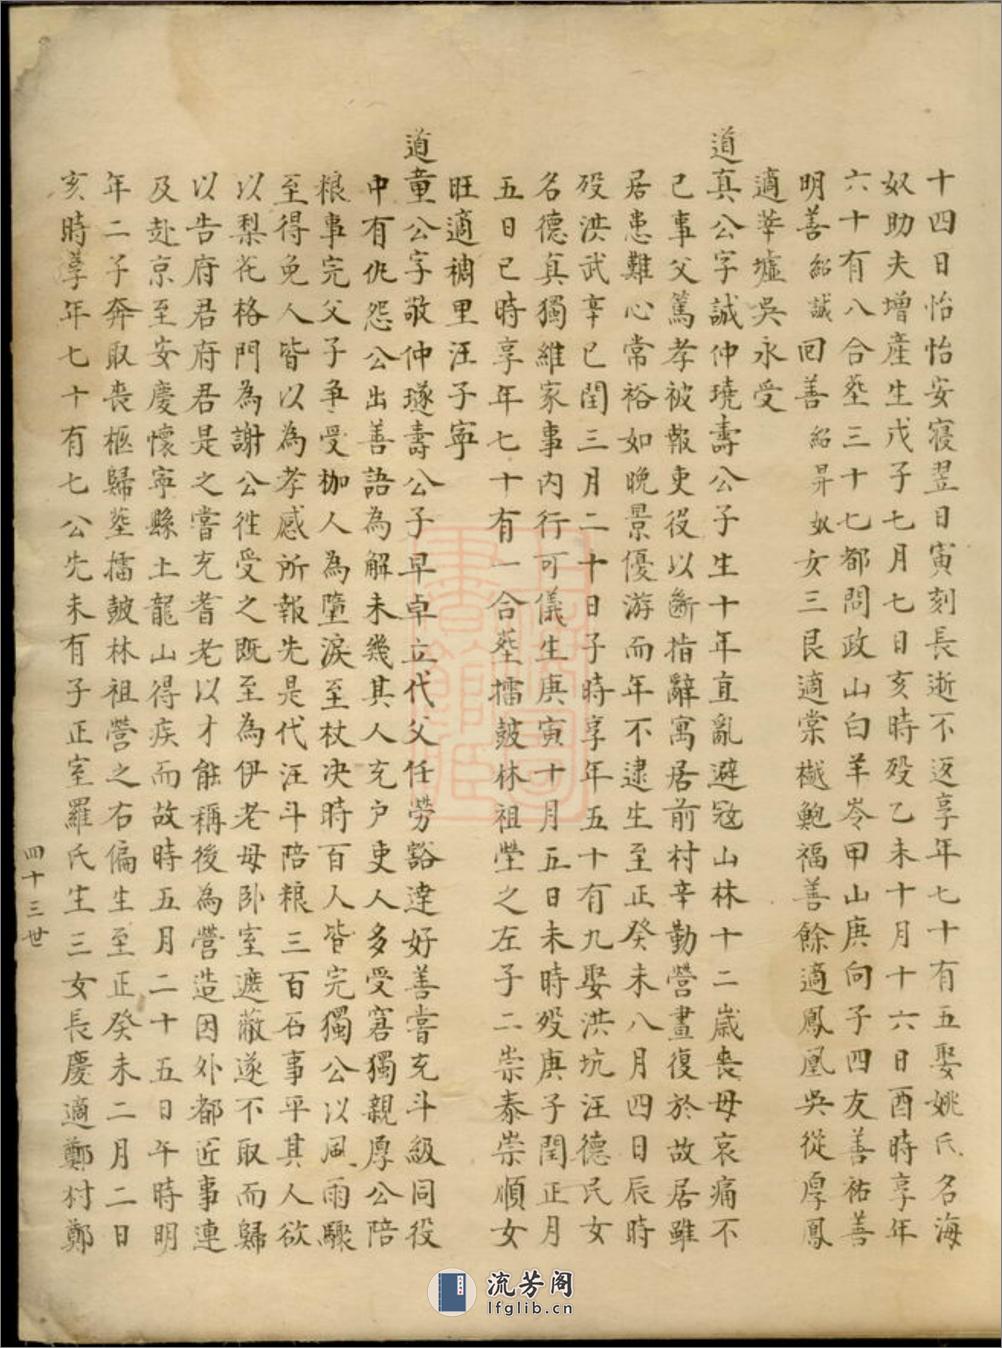 十四日怡怡安寢翌日寅刻長逝不返享年七十有五娶姚氏名海
奴助夫增產生戊子七月七日亥時歿乙未十月十六日酉時享年
六十有八合塟三十七都問政山白羊岺甲山庚向子四友善祐善
明善紹誠回善紹昇奴女三艮適棠樾鮑福善餘適鳳凰吳從厚鳳
適莘墟吳永受
道真公字誠仲琓壽公子生十年直亂避冦山林十二歲喪母哀痛不
已事父篤孝被報吏役以斷指辭寓居前村辛勤營畫復於故居雖
居患難心常裕如晚景優游而年不逮生至正癸未八月四日辰時
歿洪武辛巳閏三月二十日子時享年五十有九娶洪坑汪德民女
名德真獨維家事內行可儀生庚寅十月五日未時歿庚子閏正月
五日巳時享年七十有一合塟擂皷林祖塋之左子二崇泰崇順女
旺適禂里汪子寧
道童公字敬仲璲壽公子早卓立代父任勞豁達好善嘗充斗級同役
中有仇怨公出善語為解未幾其人充户吏人多受窘獨親厚公陪
粮事完父子爭受枷人為墮淚至杖决時百人皆完獨公以風雨驟
至得免人皆以為孝感所報先是代汪斗陪粮三百石事平其人欲
以梨花格門為謝公徃受之既至為伊老母卧室遮蔽遂不取而歸
以告府君府君是之嘗充耆老以才能稱後為營造因外都近事連
及赴京至安慶懷寧縣土龍山得疾而故時五月二十五日午時明
年二子奔取喪柩歸塟擂皷林祖塋之右偏生至正癸未二月二日
亥時享年七十有七公先未有子正室羅氏生三女長慶適鄭村鄭
四十三世
流芳阁
lfglib.cn